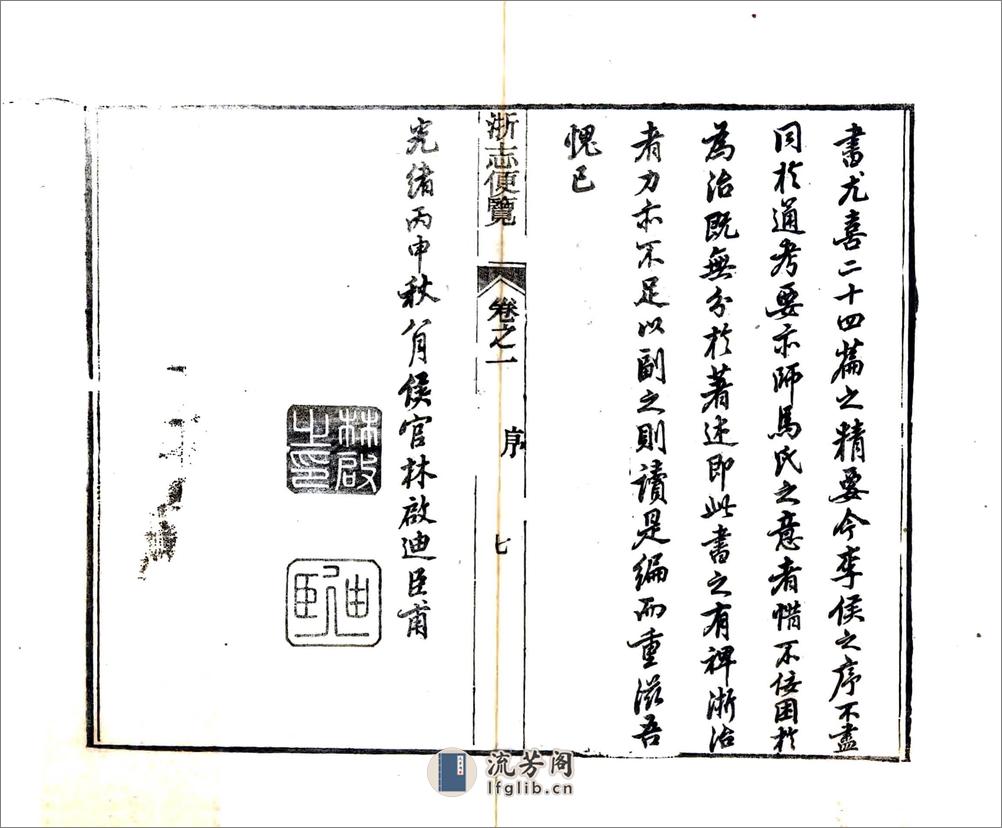 書尤喜二十四篇之精要今李侯之序不盡
同於通考要亦師馬氏之意者惜不佞困於
為治既無分於著述即此書之有裨浙治
者力亦不足以副之則讀是編而重滋吾
愧已
浙志便覽
卷之一
序
七
光緒丙申秋八月侯官林啟迪臣甫
林啟之印
迪臣
流芳阁
lfglib.cn